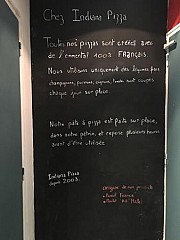 Chez Indiana Pizza
Toutes nos pizzas sont créées avec
de l'emmental 100% FRANÇAIS.
Nous utilisons uniquement des légumes frais
champignons, poivrons, oignons, tomate sont coupés
chaque jour sur place.
Notre pâte à pizza est faite sur place,
dans notre pétrin, et repose plusieurs heures
avant d'être utilisée
Indiana Pizza
depuis 2003.
Origine de nos produits